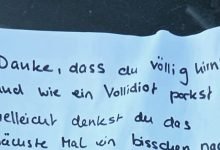 Danke, dass du völlig hirn
und wie ein Vollidiot parkst
elleicht denkst du das
ächste Mal ein bisschen nac